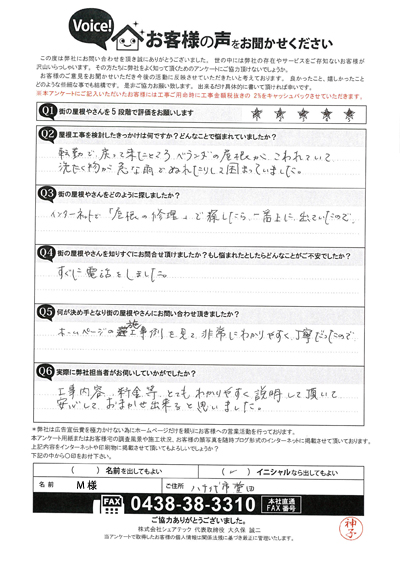 Voice!
お客様の声をお聞かせください
この度は弊社にお問い合わせを頂き誠にありがとうございました。世の中には弊社の存在やサービスをご存知ないお客様が
沢山いらっしゃいます。その方たちに弊社をよく知って頂くためのアンケートにご協力頂けないでしょうか。
お客様のご意見をお聞かせいただき今後の活動に反映させていただきたいと考えております。良かったこと、嬉しかったこと
どのような些細な事でも結構です。是非ご協力お願い致します。出来るだけ具体的に書いて頂ければ幸いです。
※本アンケートにご記入いただいたお客様には工事ご用命時に工事金額税抜きの 2%をキャッシュバックさせていただきます。
Q1 街の屋根やさんを5段階で評価をお願いします
★ ★ ★ ★ ★
Q2 屋根工事を検討したきっかけは何ですか?どんなことで悩まれていましたか?
転勤で、戻って来たところ ベランダの屋根が、こわれていて
洗たく物が 急な雨でぬれたりして困まっていました。
Q3 街の屋根やさんをどのように探しましたか?
インターネットで「屋根の修理」で探したら、一番上に出ていたので、
Q4 街の屋根やさんを知りすぐにお問合せ頂けましたか?もし悩まれたとしたらどんなことがご不安でしたか?
すぐに電話をしました。
Q5 何が決め手となり街の屋根やさんにお問い合わせ頂きましたか?
ホームページの施工事例を見て、非常にわかりやすく、丁寧だったので
Q6 実際に弊社担当者がお伺いしていかがでしたか?
工事内容、料金等、とてもわかりやすく説明して頂いて
安心して、おまかせ出来ると思いました。
*弊社は広告宣伝費を極力かけない為にホームページだけを頼りにお客様への営業活動を行っております。
本アンケート用紙またはお客様宅の調査風景や施工状況、お客様の顔写真を随時ブログ形式のインターネットに掲載させて頂いております。
上記内容をインターネットや印刷物に掲載させて頂いてもよろしいでしょうか?
下記の中から〇印をお書下さい。
( ) 名前を出してもよい ( ✓ ) イニシャルなら出してもよい
名前 M 様 ご住所 八千代市
FAX 0438-38-3310 本社直通 FAX 番号
ご協力ありがとうございました。
株式会社シェアテック 代表取締役 大久保 誠二
当アンケートで取得したお客様の個人情報は関係法規に基づき厳正に管理いたします。